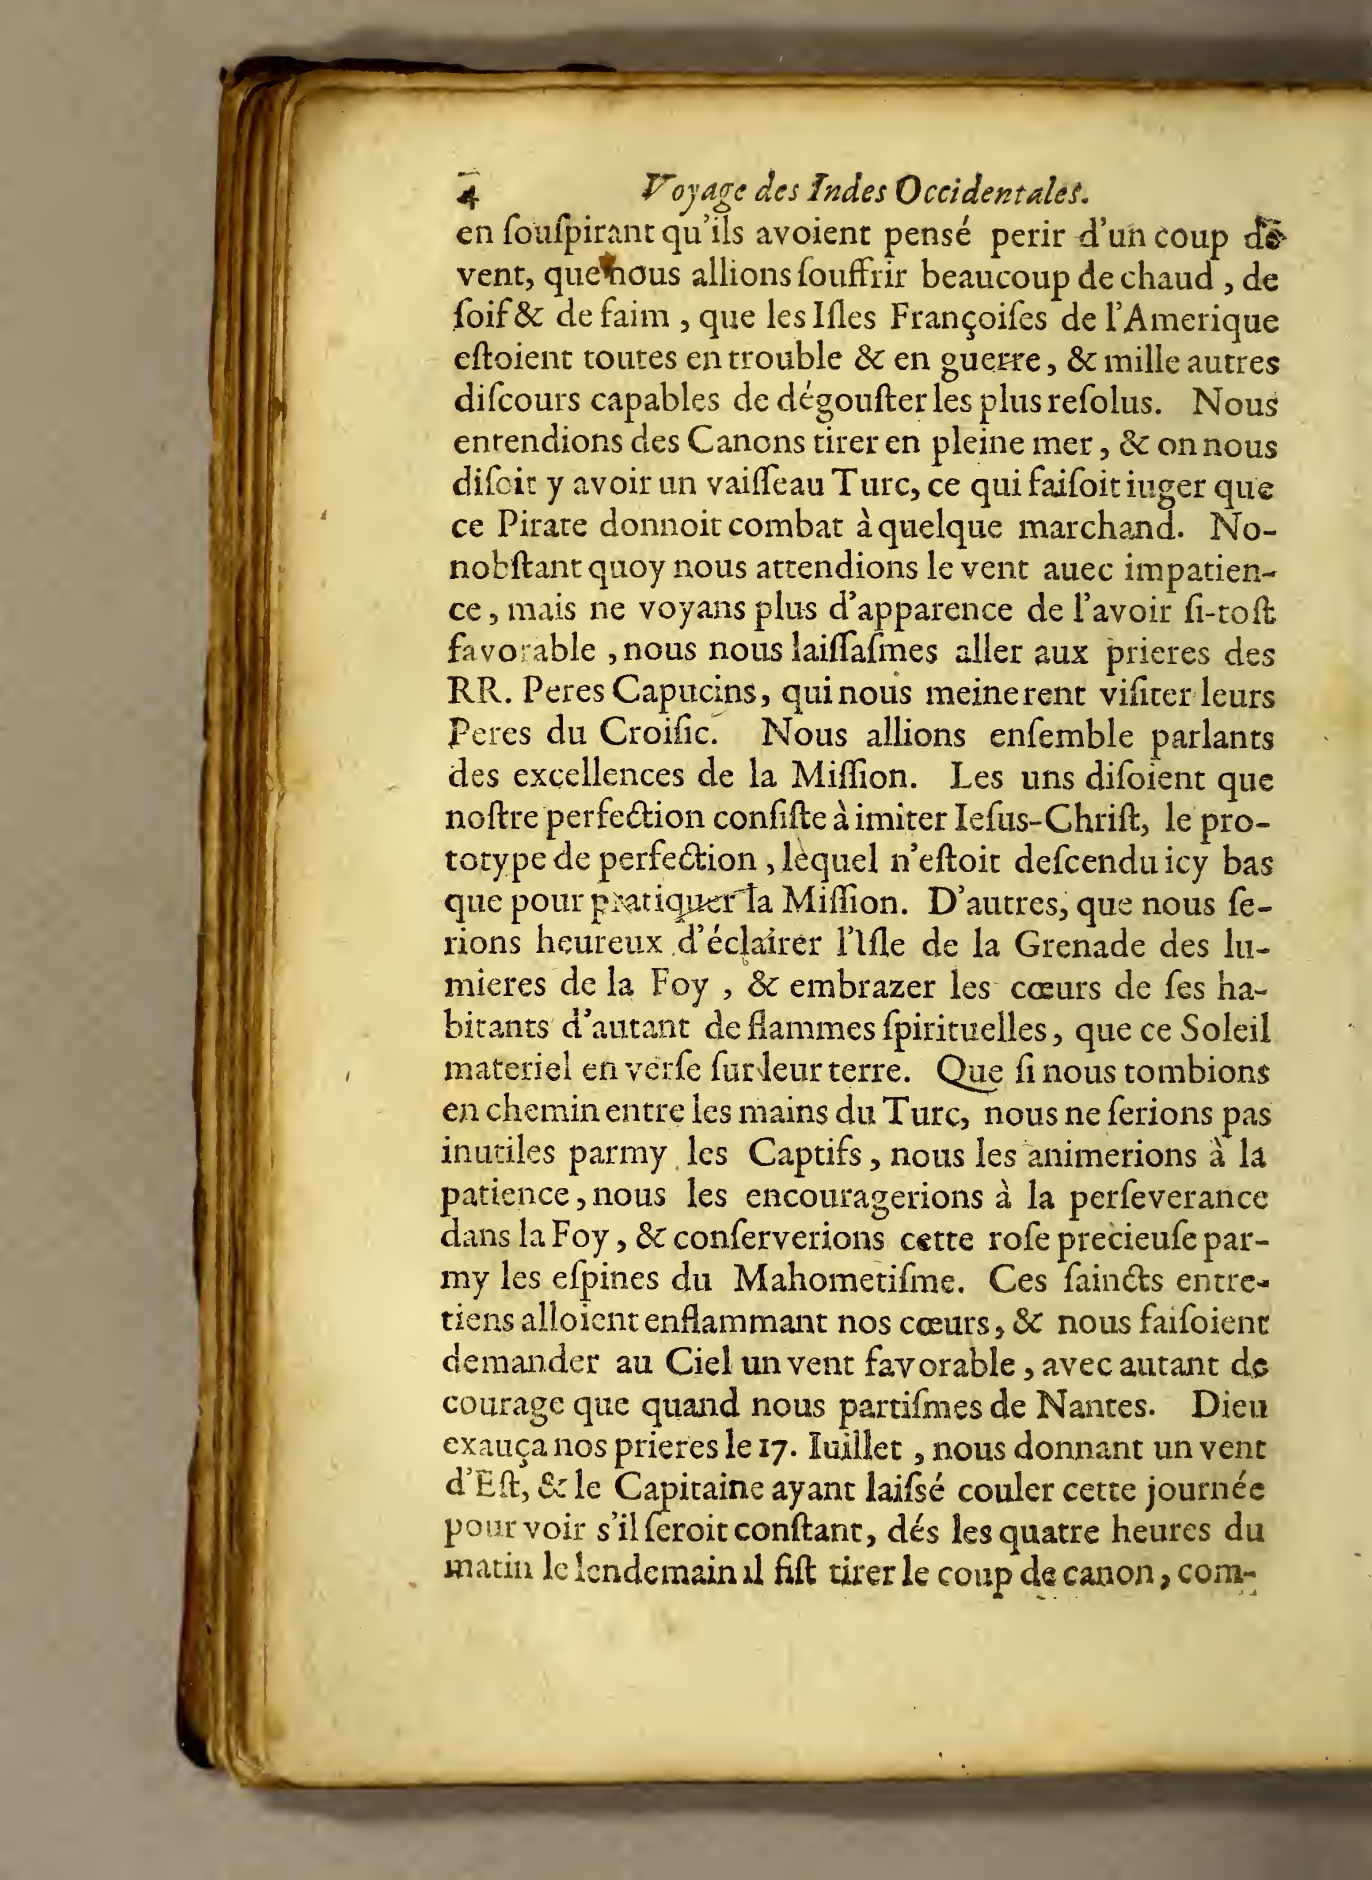 4 Voyage des Indes Occidentales.
en ſouſpirant qu'ils avoient pensé perir d'un coup de
vent, que nous allions ſouffrir beaucoup de chaud, de
ſoif & de faim, que les Iſles Françoiſes de l'Amerique
eſtoient toutes en trouble & en guerre, & mille autres
diſcours capables de dégouſter les plus reſolus. Nous
entendions des Canons tirer en pleine mer, & on nous
diſoit y avoir un vaiſſeau Turc, ce qui faiſoit iuger que
ce Pirate donnoit combat à quelque marchand. No-
nobſtant quoy nous attendions le vent auec impatien-
ce, mais ne voyans plus d'apparence de l'avoir ſi-toſt
favorable, nous nous laiſſaſmes aller aux prieres des
RR. Peres Capucins, qui nous meinerent viſiter leurs
Peres du Croiſic. Nous allions enſemble parlants
des excellences de la Miſſion. Les uns diſoient que
noſtre perfection conſiſte à imiter Ieſus-Chriſt, le pro-
totype de perfection, lequel n'eſtoit deſcendu icy bas
que pour pratiquer la Miſſion. D'autres, que nous ſe-
rions heureux d'éclairer l'Iſle de la Grenade des lu-
mieres de la Foy, & embrazer les cœurs de ſes ha-
bitants d'autant de flammes ſpirituelles, que ce Soleil
materiel en verſe ſur leur terre. Que ſi nous tombions
en chemin entre les mains du Turc, nous ne ſerions pas
inutiles parmy les Captifs, nous les animerions à la
patience, nous les encouragerions à la perſeverance
dans la Foy, & conſerverions cette roſe precieuſe par-
my les eſpines du Mahometiſme. Ces ſaincts entre-
tiens alloient enflammant nos cœurs, & nous faiſoient
demander au Ciel un vent favorable, avec autant de
courage que quand nous partiſmes de Nantes. Dieu
exauça nos prieres le 17. Iuillet, nous donnant un vent
d'Eſt, & le Capitaine ayant laiſsé couler cette journée
pour voir s'il ſeroit conſtant, dés les quatre heures du
matin le lendemain il fiſt tirer le coup de canon, com-